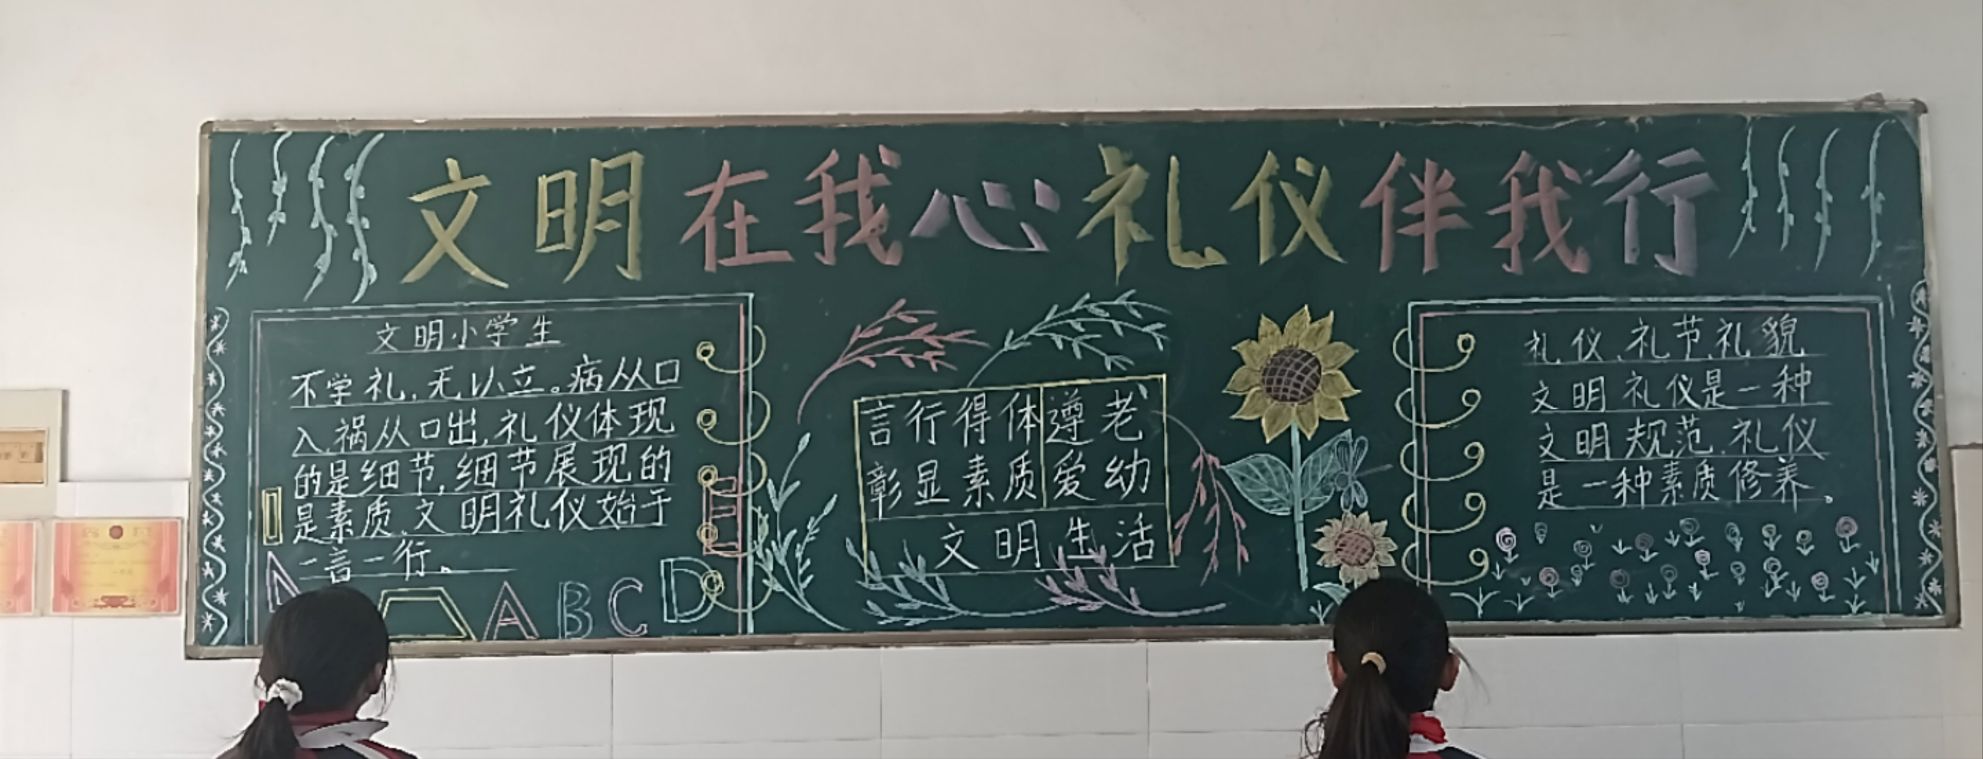 文明在我心礼仪伴我行
文明小学生
不学礼,无以立。病从口
入,祸从口出,礼仪体现
的是细节,细节展现的
是素质、文明礼仪始于
一言一行。
A B C D
E
言行得体
彰显素质
遵老
爱幼
文明生活
礼仪、礼节、礼貌
文明礼仪是一种
文明规范,礼仪
是一种素质修养。